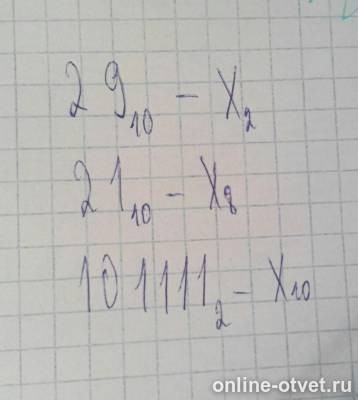 29₁₀ – X₂
21₁₀ – X₈
101111₂ – X₁₀
online-otvet.ru